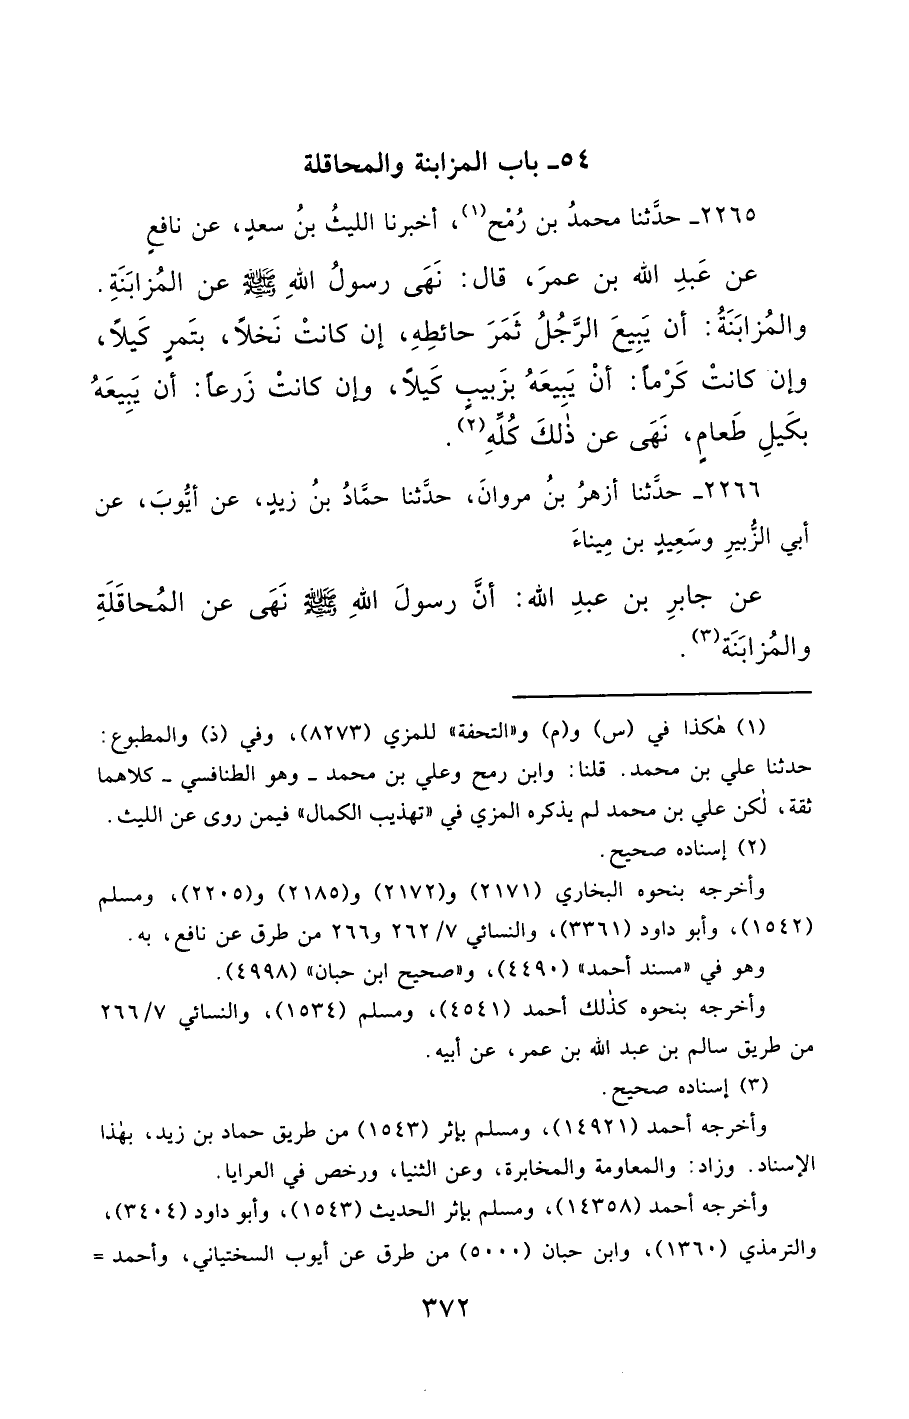 ٥٤ـ باب المزابنة والمحاقلة
٢٢٦٥ـ حدَّثنا محمدُ بن رُمْح(١)، أخبرنا الليثُ بنُ سعدٍ، عن نافعٍ
عن عَبدِ الله بن عمرَ، قال: نَهَى رسولُ اللهِ ﷺ عن المُزابَنَةِ.
والمُزابَنَةُ: أن يَبِيعَ الرَّجُلُ ثَمَرَ حائطِهِ، إن كانتْ نَخلاً، بتَمرٍ كَيلاً،
وإن كانتْ كَرْماً: أنْ يَبِيعَهُ بزَبيبٍ كَيلاً، وإن كانتْ زَرعاً: أن يَبِيعَهُ
بكَيلِ طَعامٍ، نَهَى عن ذٰلكَ كُلِّهِ(٢).
٢٢٦٦ـ حدَّثنا أزهرُ بنُ مروانَ، حدَّثنا حمَّادُ بنُ زيدٍ، عن أيُّوبَ، عن
أبي الزُّبيرِ وسَعِيدٍ بن مِيناءَ
عن جابرِ بن عبدِ الله: أنَّ رسولَ اللهِ ﷺ نَهَى عن المُحاقَلَةِ
والمُزابَنَة(٣).
(١) هٰكذا في (س) و(م) و«التحفة» للمزي (٨٢٧٣)، وفي (ذ) والمطبوع:
حدثنا علي بن محمد. قلنا: وابن رمح وعلي بن محمد ـ وهو الطنافسي ـ كلاهما
ثقة، لٰكن علي بن محمد لم يذكره المزي في «تهذيب الكمال» فيمن روى عن الليث.
(٢) إسناده صحيح.
وأخرجه بنحوه البخاري (٢١٧١) و(٢١٧٢) و(٢١٨٥) و(٢٢٠٥)، ومسلم
(١٥٤٢)، وأبو داود (٣٣٦١)، والنسائي ٧/ ٢٦٢ و٢٦٦ من طرق عن نافع، به.
وهو في «مسند أحمد» (٤٤٩٠)، و«صحيح ابن حبان» (٤٩٩٨).
وأخرجه بنحوه كذٰلك أحمد (٤٥٤١)، ومسلم (١٥٣٤)، والنسائي ٧/ ٢٦٦
من طريق سالم بن عبد الله بن عمر، عن أبيه.
(٣) إسناده صحيح.
وأخرجه أحمد (١٤٩٢١)، ومسلم بإثر (١٥٤٣) من طريق حماد بن زيد، بهٰذا
الإسناد. وزاد: والمعاومة والمخابرة، وعن الثنيا، ورخص في العرايا.
وأخرجه أحمد (١٤٣٥٨)، ومسلم بإثر الحديث (١٥٤٣)، وأبو داود (٣٤٠٤)،
والترمذي (١٣٦٠)، وابن حبان (٥٠٠٠) من طرق عن أيوب السختياني، وأحمد =
٣٧٢